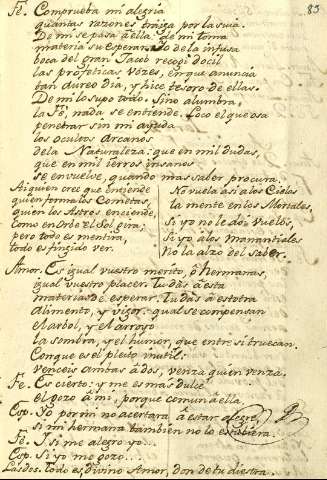 83
Fe. Comprueba mi alegria
quantas razones traiga por la suia.
De mi se pasa à ella, de mi toma
materia su Esperanza. Yo de la infusa
boca del gran Jacob recogi docil
las profeticas Vozes, en que anuncia
tan aureo dia, y hice tesoro de ellas.
De mi lo supo todo. Sino alumbra,
la Fé, nada se entiende. Loco el que osa
penetrar sin mi ayuda
los ocultos Arcanos
de la Naturaleza: que en mil dudas,
que en mil ierros insanos
se envuelve, quando mas saber procura.
Ai quien cree que entiende
quien forma los Cometas,
quien los Astros enciende,
como en Orbe el Sol gira;
pero todo es mentira,
todo es fingido ver.
No vuela asi a los Cielos
la mente en los Mortales,
Si yo no le doi vuelos,
Si yo à los manantiales
No la alzo del saber.
Amor. Es igual vuestro merito, ò hermanas,
igual vuestro placer. Tu dàs à esta
materias de esperar. Tu dàs à estotra
alimento, y vigor: qual se compensan
el arbol, y el arroyo
la sombra, y el humor, que entre si truecan.
Conque es el pleito inutil:
venceis ambas à dos, venza quien venza.
Fe. Es cierto: y me es mas dulce
el gozo à mi, porque comun à ella.
Esp. Yo por mi no acertara à estar alegre,
si mi hermana tambien no lo estubiera.
Fe. I si me alegro yo...
Esp. Si yo me gozo...
Las dos. Todo es, Divino Amor, don de tu diestra.